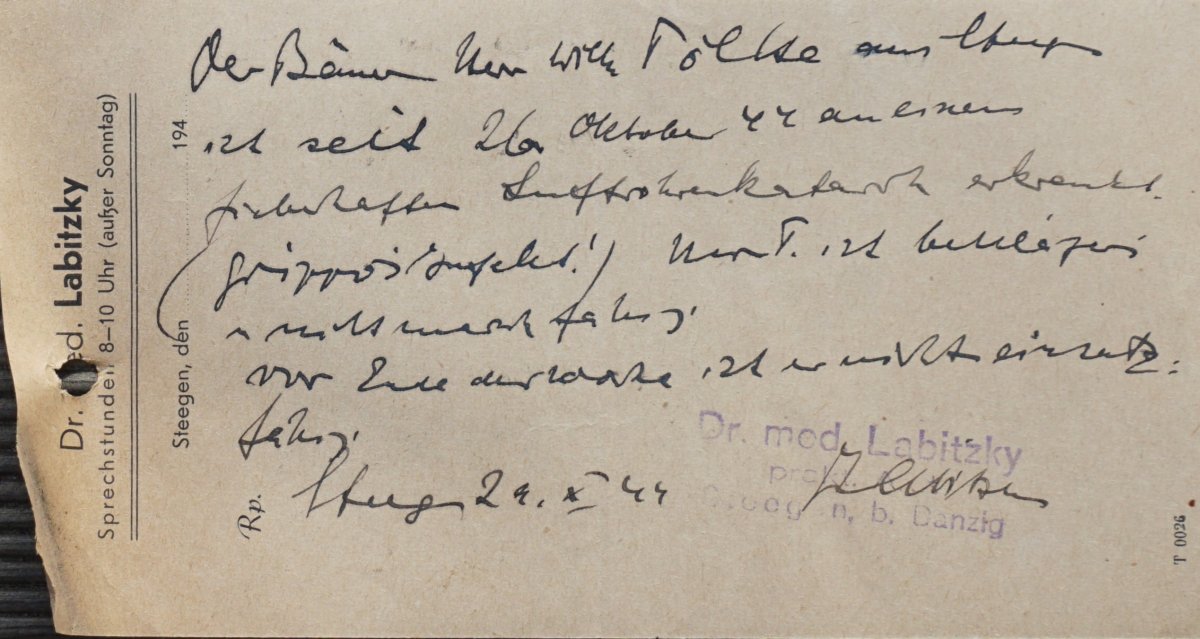 Dr. med. Labitzky
Sprechstunden 8–10 Uhr (außer Sonntag)
Steegen, den 194
Der Bauer Herr Willi Tölke aus Steegen
ist seit 26. Oktober 44 an einem
fieberhaften Luftröhrenkatarrh erkrankt.
(grippöser Infekt!) Herr T. ist bettlägerig
u nicht marschfähig.
Vor Ende der Woche ist er nicht einsatz-
fähig.
Rp.
Steegen 29. X 44
Dr. med. Labitzky
Steegen, b. Danzig
Labitzky
T 0026